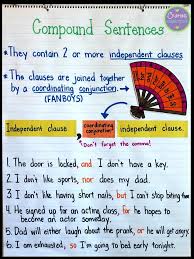 Compound Sentences
• They contain 2 or more independent clauses.
• The clauses are joined together
by a coordinating conjunction.
(FANBOYS)
Independent clause
,
coordinating conjunction
independent clause.
Don't forget the comma!
1. The door is locked, and I don't have a key.
2. I don't like sports, nor does my dad.
3. I don't like having short nails, but I can't stop biting them.
4. He signed up for an acting class, for he hopes to
become an actor someday.
5. Dad will either laugh about the prank, or he will get angry.
6. I am exhausted, so I'm going to bed early tonight.